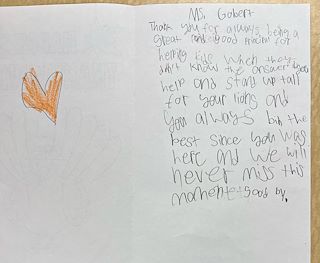 Ms. Gobert
Thank you for always being a
great and good teacher for
helping kids when they
didn't know the answer
help and stand up tall
for your lions and
you always bin the
best since you was
here and we will
never miss this
moment good by.